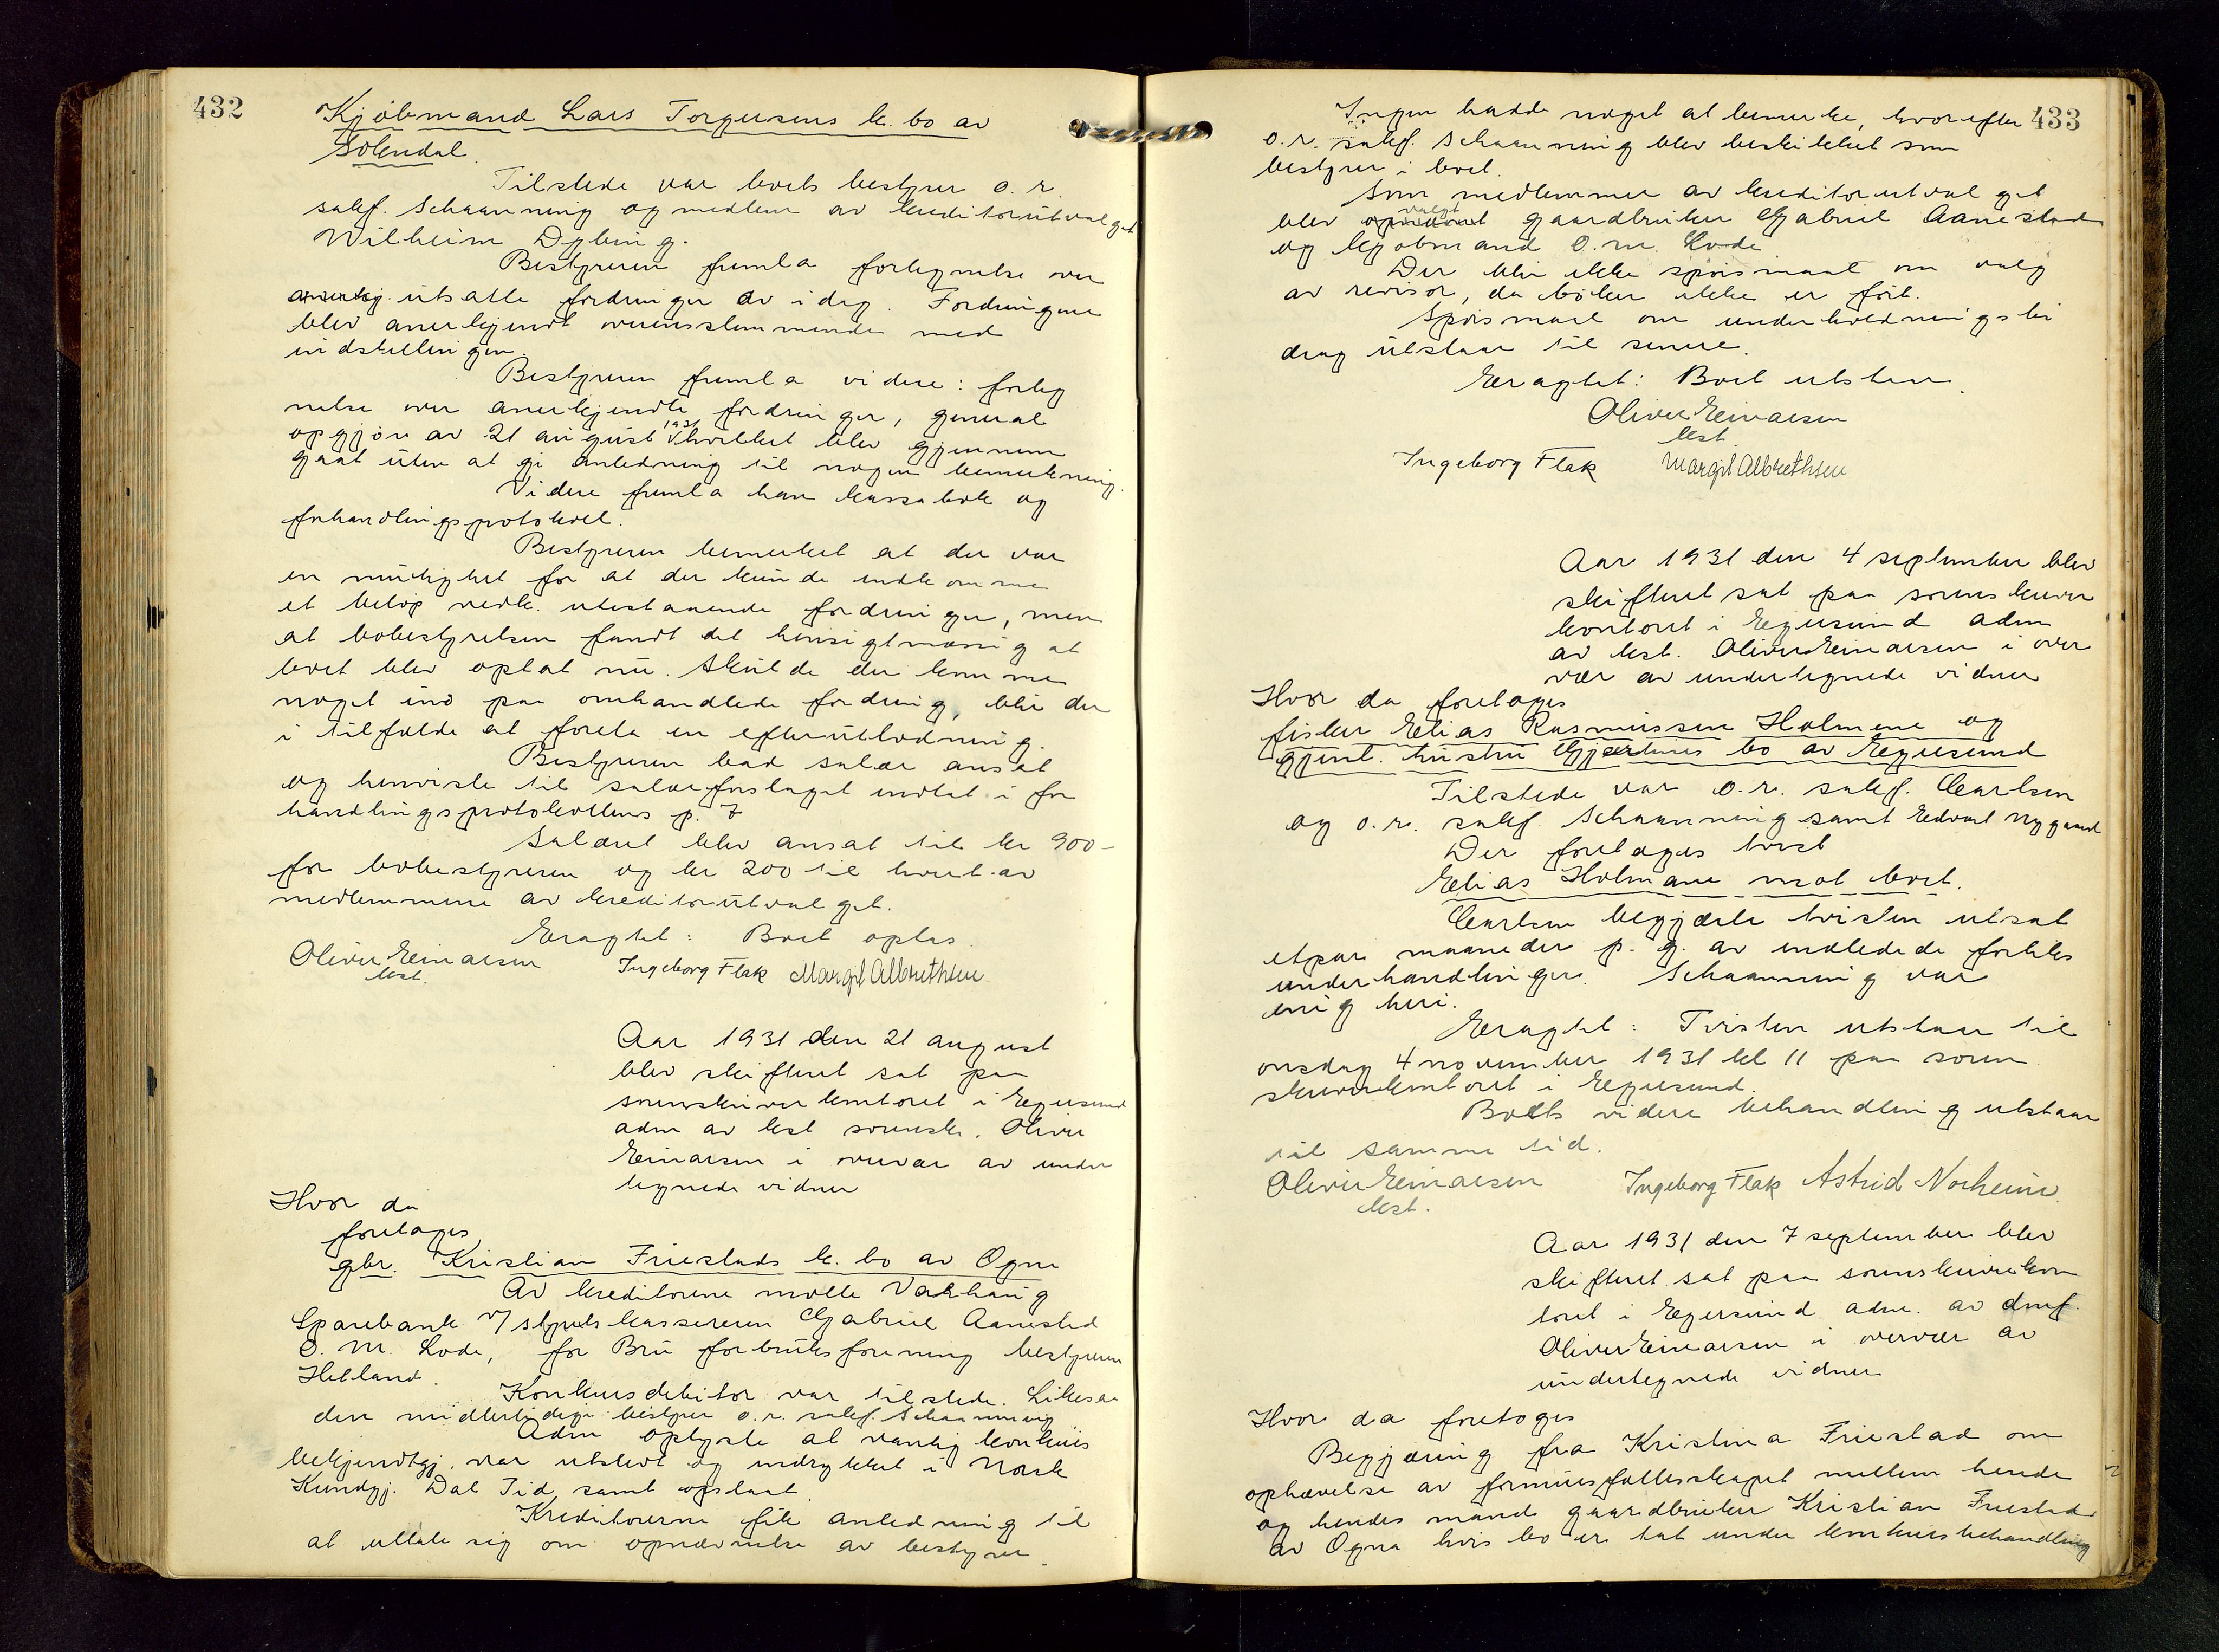 432
Kjøbmand Lars Torgersens k. bo av
Sokndal.
Tilstede var boets bestyrer o. r.
sakf. Schaanning og medlem av kreditorutvalget
Wilhelm Dybing.
Bestyreren fremla fortegnelse over
utsatte fordringer av idag. Fordringene
blev anerkjendt overensstemmende med
indstillingen.
Bestyreren fremla videre: forteg
nelse over anerkjendte fordringer, general
opgjør av 21 august 1931 hvilket blev gjennem
gaat uten at gi anledning til nogen bemerkning.
Videre fremla han kassabok og
forhandlingsprotokol.
Bestyreren bemerket at der var
en mulighet for at der kunde indkomme
et beløp vedk. utestaaende fordringer, men
at bobestyrelsen fandt det hensigtmæssig at
boet blev optat nu. Skulde der komme
noget ind paa omhandlede fordring, blir der
i tilfælde at foreta en efterutlodning.
Bestyreren bad salær ansat
og henviste til salærforslaget indtat i for
handlingsprotokollens p. 7
Salæret blev ansat til kr 900-
for bobestyreren og kr 200 til hvert av
medlemmene av kreditorutvalget.
Eragtet: Boet optas.
Oliver Einarsen
kst.
Ingeborg Flak Margit Albrethsen
Aar 1931 den 21 august
blev skifteret sat paa
sorenskriverkontoret i Egersund
adm av kst sorenskr. Oliver
Einarsen i overvær av under
tegnede vidner
Hvor da
foretoges
gbr. Kristian Friestads k. bo av Ogna
Av kreditorene møtte Varhaug
Sparebank v/ styrets kassereren Gabriel Aanestad
O. M. Lode, for Bru forbruksforening bestyreren
Helland.
Konkursdebitor var tilstede. Likesaa
den midlertidige bestyrer o. r. sakf. Schaanning
Adm oplyste at vanlig konkurs
bekjendtgj. var utstedt og indrykket i Norsk
Kundgj. Dal. Tid. samt opslaat.
Kreditorerne fik anledning til
at uttale sig om opnævnelse av bestyrer.
433
Ingen hadde noget at bemerke, hvorefter
o. r. sakf. Schaanning blev beskikket som
bestyrer i boet.
Som medlemmer av kreditorutvalget
blev valgt gaardbruker Gabriel Aanestad
og kjøbmand O. M. Lode
Der blir ikke spørsmaal om valg
av revisor, da bøker ikke er ført.
Spørsmaal om underholdningsbi
drag utstaar til senere.
Eragtet: Boet utstaar.
Oliver Einarsen
kst
Ingeborg Flak Margit Albrethsen
Aar 1931 den 4 september blev
skifteret sat paa sorenskriver
kontoret i Egersund adm
av kst. Oliver Einarsen i over
vær av undertegnede vidner
Hvor da foretoges
fisker Elias Rasmussen Holmene og
gjenl. hustru Gjertines bo av Egersund
Tilstede var o. r. sakf. Carlsen
og o. r. sakf. Schaanning samt Edvart Nygaard
Der foretoges tvist
Elias Holmane mot boet.
Carlsen begjærte tvisten utsat
etpar maaneder p. g. av indledede forliks
underhandlinger. Schaanning var
enig heri.
Eragtet: Tvisten utstaar til
onsdag 4 november 1931 kl 11 paa soren
skriverkontoret i Egersund.
Boets videre behandling utstaar
til samme tid.
Oliver Einarsen
kst.
Ingeborg Flak Astrid Norheim
Aar 1931 den 7 september blev
skifteret sat paa sorenskriverkon
toret i Egersund adm. av dmf.
Oliver Einarsen i overvær av
undertegnede vidner
Hvor da foretoges
Begjæring fra Kristina Friestad om
ophævelse av formuesfællesskapet mellem hende
og hendes mand gaardbruker Kristian Friestad
av Ogna hvis bo er tat under konkursbehandling